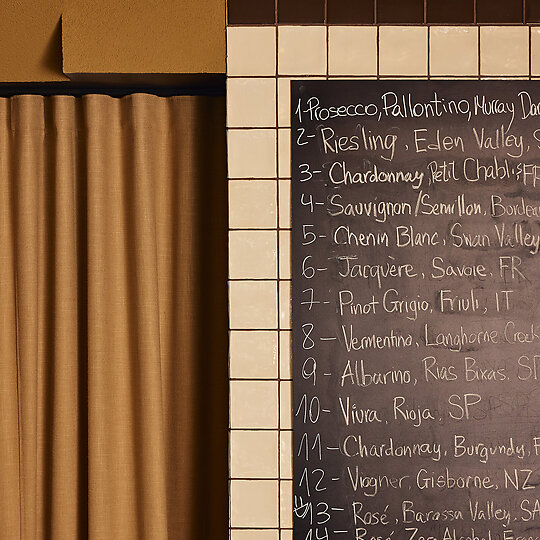 1-Prosecco, Pallontino, Murray Da
2- Riesling, Eden Valley, S
3- Chardonnay, Petit Chablis FR
4- Sauvignon/Semillon, Bordea
5- Chenin Blanc, Swan Valley
6- Jacquère, Savoie, FR
7- Pinot Grigio, Friuli, IT
8- Vermentino, Langhorne Creek
9- Albarino, Rias Bixas, SP
10- Viura, Rioja, SP
11- Chardonnay, Burgundy, F
12- Viogner, Gisborne, NZ
13- Rosé, Barassa Valley, SA
14- Rosé, Zero Alcohol, Franc